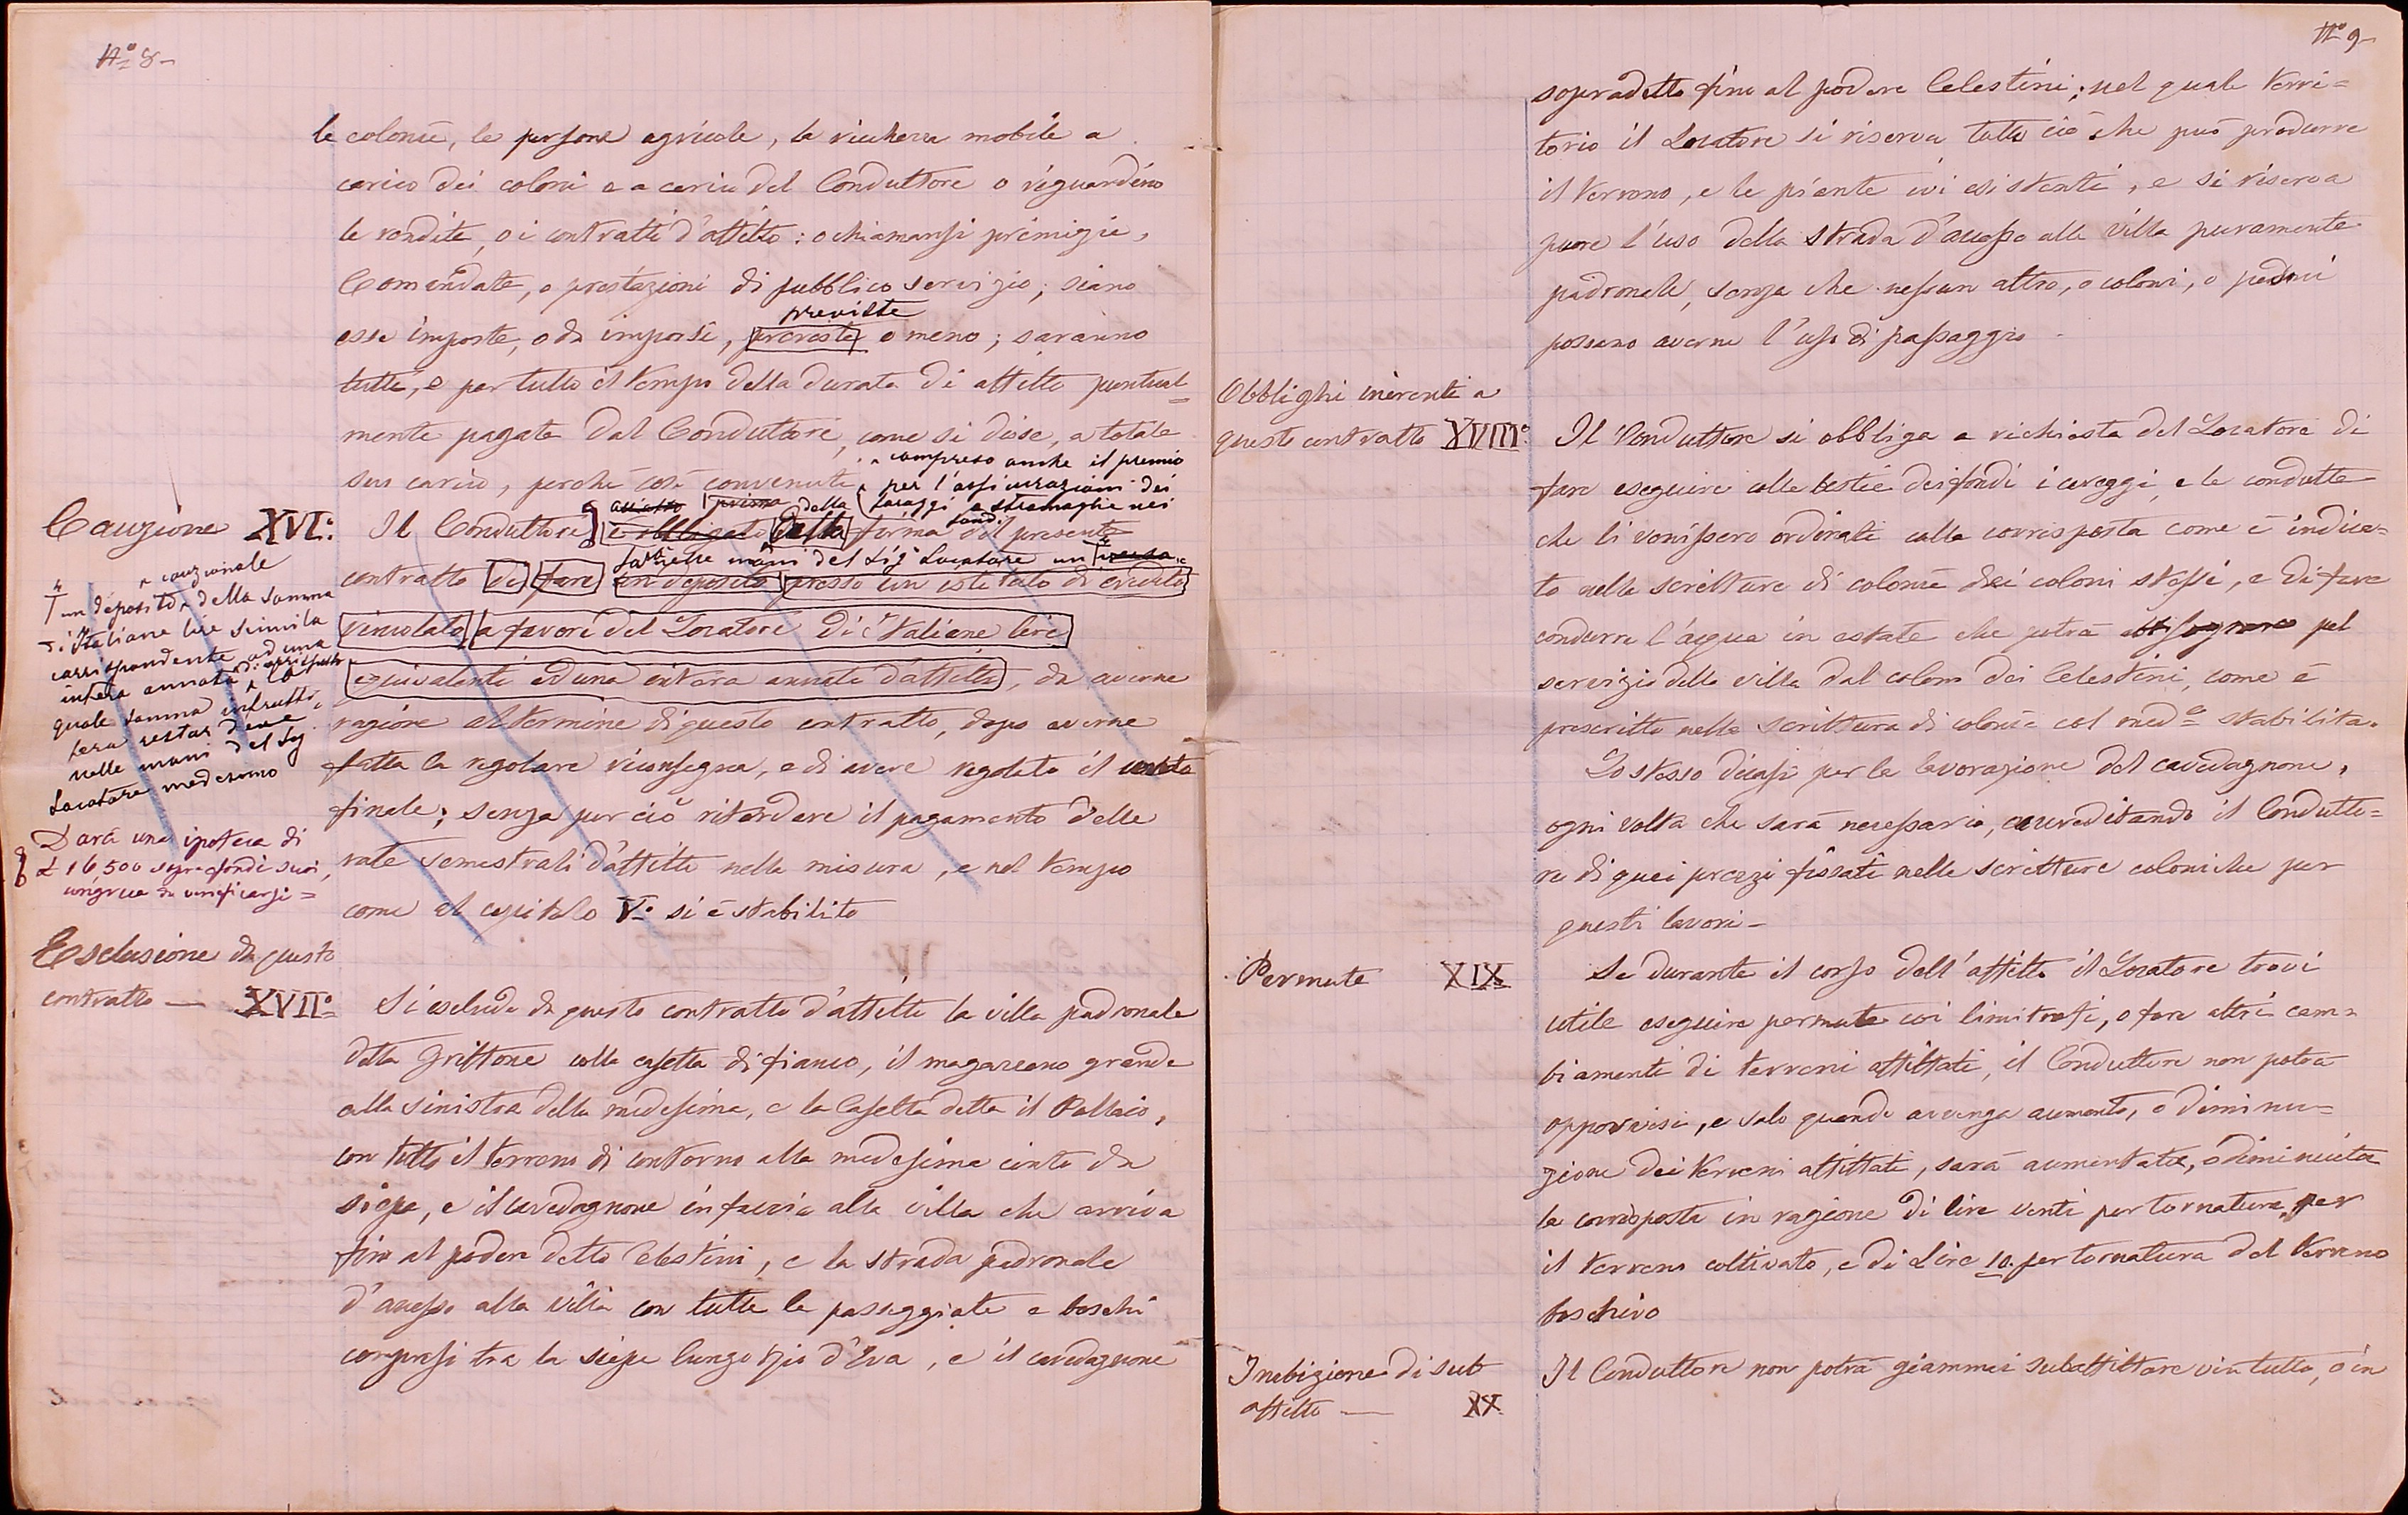 N.° 8-
le colonie, le persone agricole, la richezza mobile a
carico dei coloni e a carico del Conduttore o riguardino
le rendite, o i contratti d'affitto: o chiamansi primizie,
Comandate, o prestazioni di pubblico servizio; siano
previste
esse imposte, o da imporsi, o meno; saranno
tutte, e per tutto il tempo della durata di affitto puntual=
mente pagate dal Conduttore, come si disse, a totale
compreso anche il premio
suo carico, perchè così convenuto per l'assicurazioni dei
foraggi e stramaglie nei
fondi
della
Cauzione XVI.° Il Conduttore è obbligato della firma del presente
farà nelle mani del Sig.r Locatore un
contratto di fare un deposito presso un istituto di credito
vincolato a favore del Locatore di Italiane lire
equivalenti ad una intera annata d'affitto, da averne
ragione al termine di questo contratto, dopo averne
fatta la regolare riconsegna, e di avere regolato il conto
finale; senza per ciò ritardare il pagamento delle
rate semestrali d'affitto nella misura, e nel tempo
come al capitolo V.° si è stabilito
cauzionale
un deposito della somma
di Italiane lire seimila
corrispondente ad una
intera annata di corrisposta
la
quale somma infrutti=
fera restar deve
nelle mani del Sig
Locatore medesimo
Darà una ipoteca di
£ 16,500 sopra fondi suoi,
congrua da verificarsi=
Esclusione da questo
contratto — XVII.° Si esclude da questo contratto d'affitto la villa padronale
detta Griffone colla casetta di fianco, il magazzeno grande
alla sinistra della medesima, e la Casetta detta il Pallaio,
con tutto il terreno di contorno alla medesima cinto da
siepe, e il cavedagnone in faccia alla villa che arriva
fino al podere detto Celestini, e la strada padronale
d'accesso alla villa con tutte le passeggiate e boschi
compresi tra la siepe lungo rio d'Eva, e il cavedagnone
N.° 9-
sopradetto fino al podere Celestini; nel quale terri=
torio il Locatore si riserva tutto ciò che può produrre
il terreno, e le piante ivi esistenti, e si riserva
pure l'uso della strada d'accesso alla villa puramente
padronale, senza che nessun altro, o coloni, o pedoni
possano averne l'uso di passaggio
Obblighi inerenti a
questo contratto XVIII.° Il Conduttore si obbliga a richiesta del Locatore di
fare eseguire colle bestie dei fondi i careggi, e le condotte
che li venissero ordinati colla corrisposta come è indica=
to nelle scritture di colonìe dei coloni stessi, e di fare
condurre l'acqua in estate che potrà abbisognare pel
servizio della villa dal colono dei Celestini, come è
prescritto nella scrittura di colonìa col med.° stabilita.
Lo stesso dicasi per la lavorazione del cavedagnone,
ogni volta che sarà necessario, accreditando il Condutto=
re di quei prezzi fissati nelle scritture coloniche per
questi lavori-
Permute XIX Se durante il corso dell'affitto il Locatore trovi
utile eseguire permute coi limitrofi, o fare altri cam=
biamenti di terreni affittati, il Conduttore non potrà
opporvisi, e solo quando avvenga aumento, o diminu=
zione dei terreni affittati, sarà aumentata, o diminuita
la corrisposta in ragione di lire venti per tornatura, per
il terreno coltivato, e di Lire 10. per tornatura del terreno
boschivo
Inibizione di sub
affitto — XX. Il Conduttore non potrà giammai subaffittare o in tutto, o in